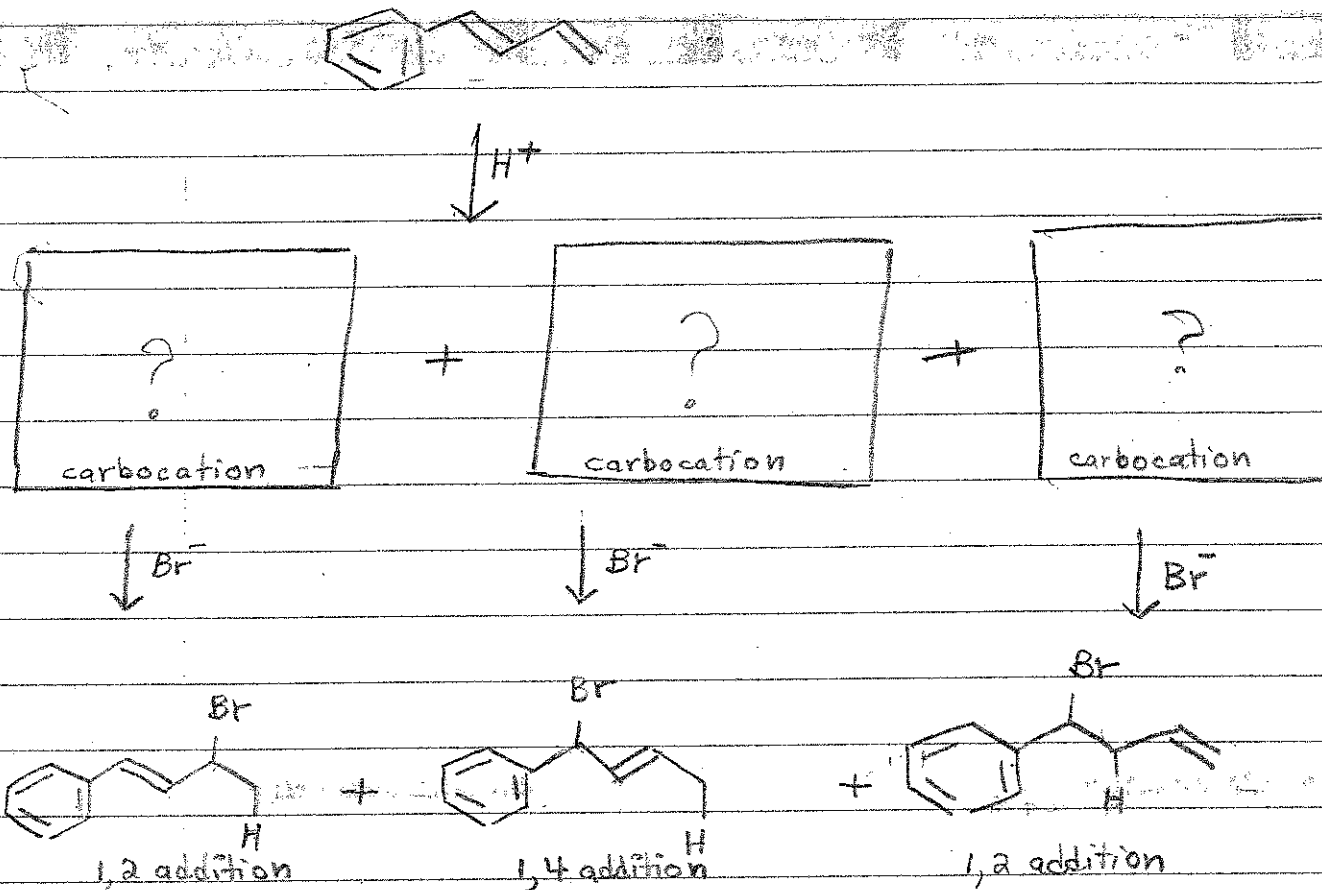 H+
? + ? + ?
carbocation carbocation carbocation
Br- Br- Br-
Br Br Br
+ +
H H H
1,2 addition 1,4 addition 1,2 addition